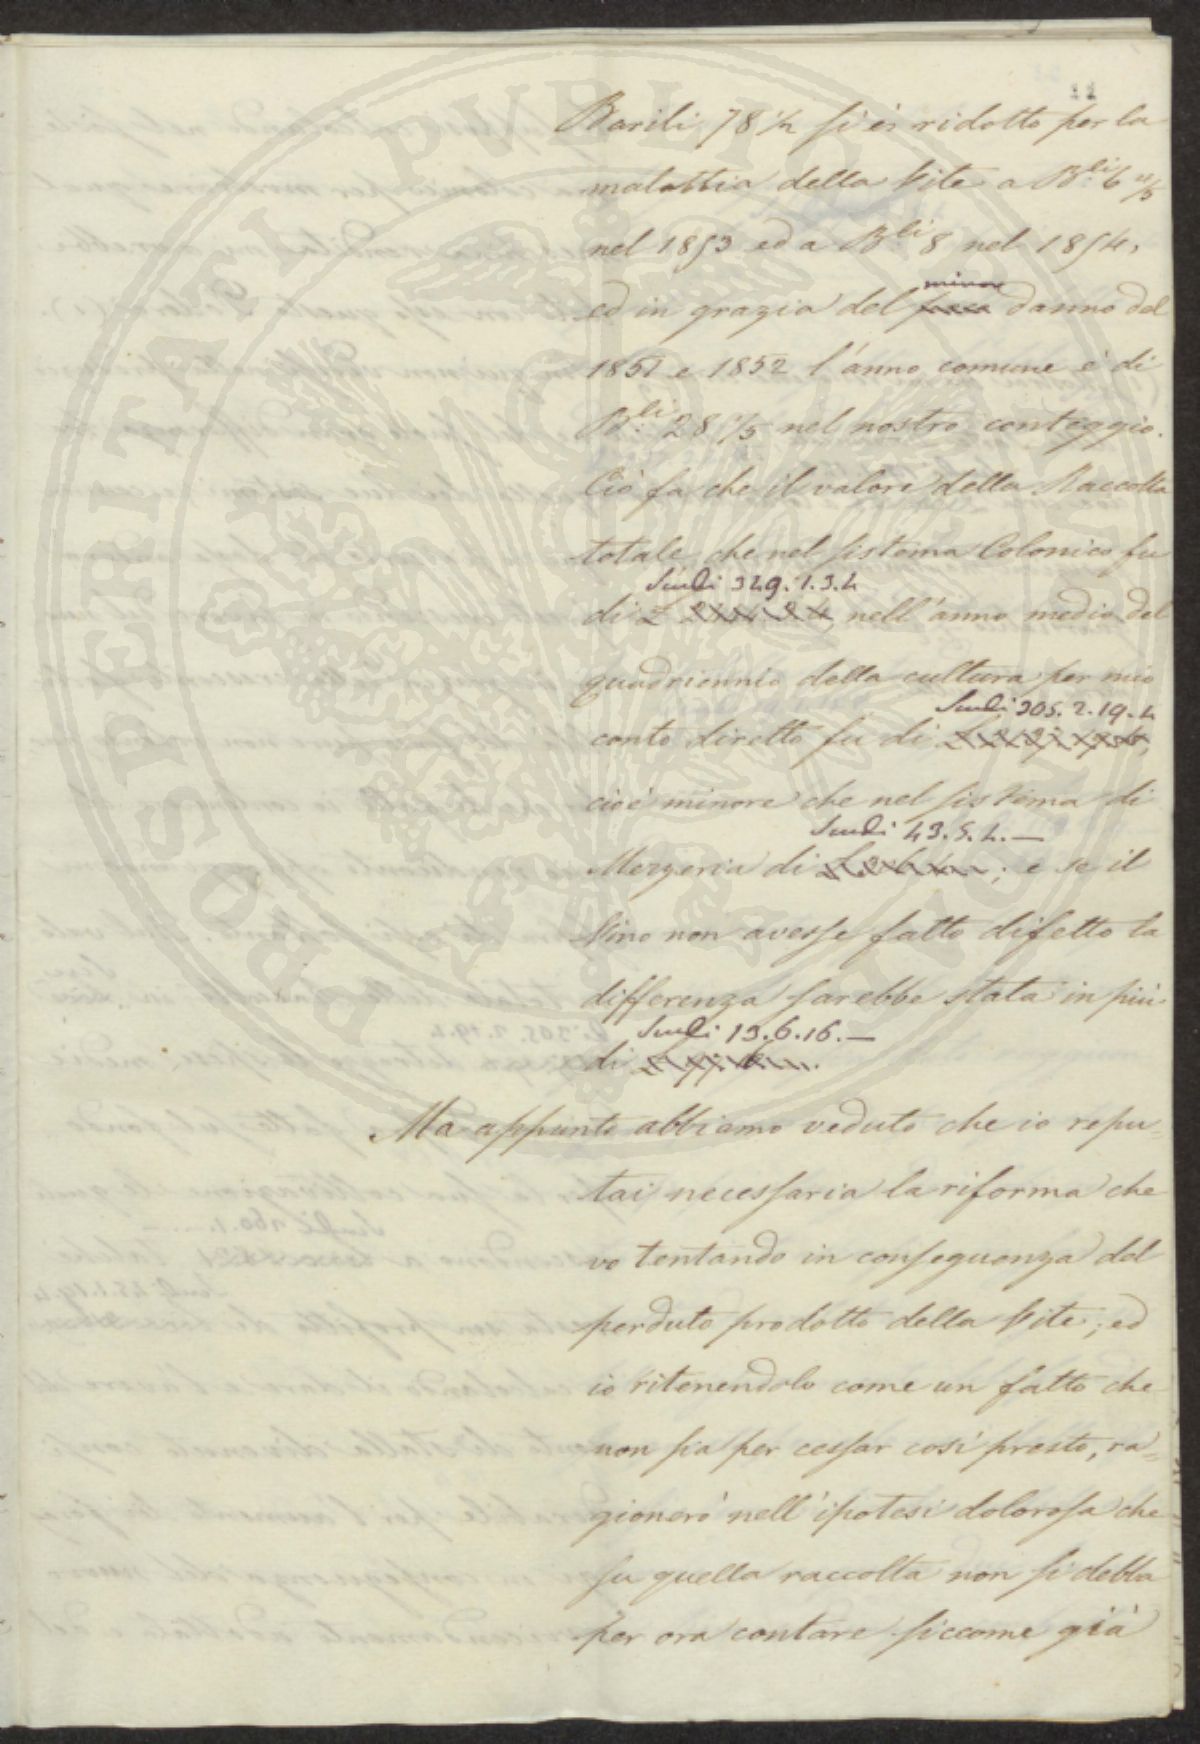 11
Barili 78 1/2 si è ridotto per la
malattia della Vite a B.li 6 4/5
nel 1853 ed a B.li 8 nel 1854,
minor
ed in grazia del danno del
1851 e 1852 l'anno comune è di
B.li 28 1/5 nel nostro conteggio.
Ciò fa che il valore della Raccolta
totale, che nel sistema Colonico fu
Scudi 349.1.3.4
di L nell'anno medio del
quadriennio della cultura per mio
Scudi 305.2.19.4
conto diretto fu di
cioè minore che nel sistema di
Scudi 43.5.4.—
Mezzeria di ; e se il
Vino non avesse fatto difetto la
differenza sarebbe stata in più
Scudi 13.6.16.—
di
Ma appunto abbiamo veduto che io repu=
tai necessaria la riforma che
vo tentando in conseguenza del
perduto prodotto della Vite; ed
io ritenendolo come un fatto che
non sia per cessar così presto, ra=
gionerò nell'ipotesi dolorosa che
su quella raccolta non si debba
per ora contare siccome già
POSPERITATI PVBLICAE